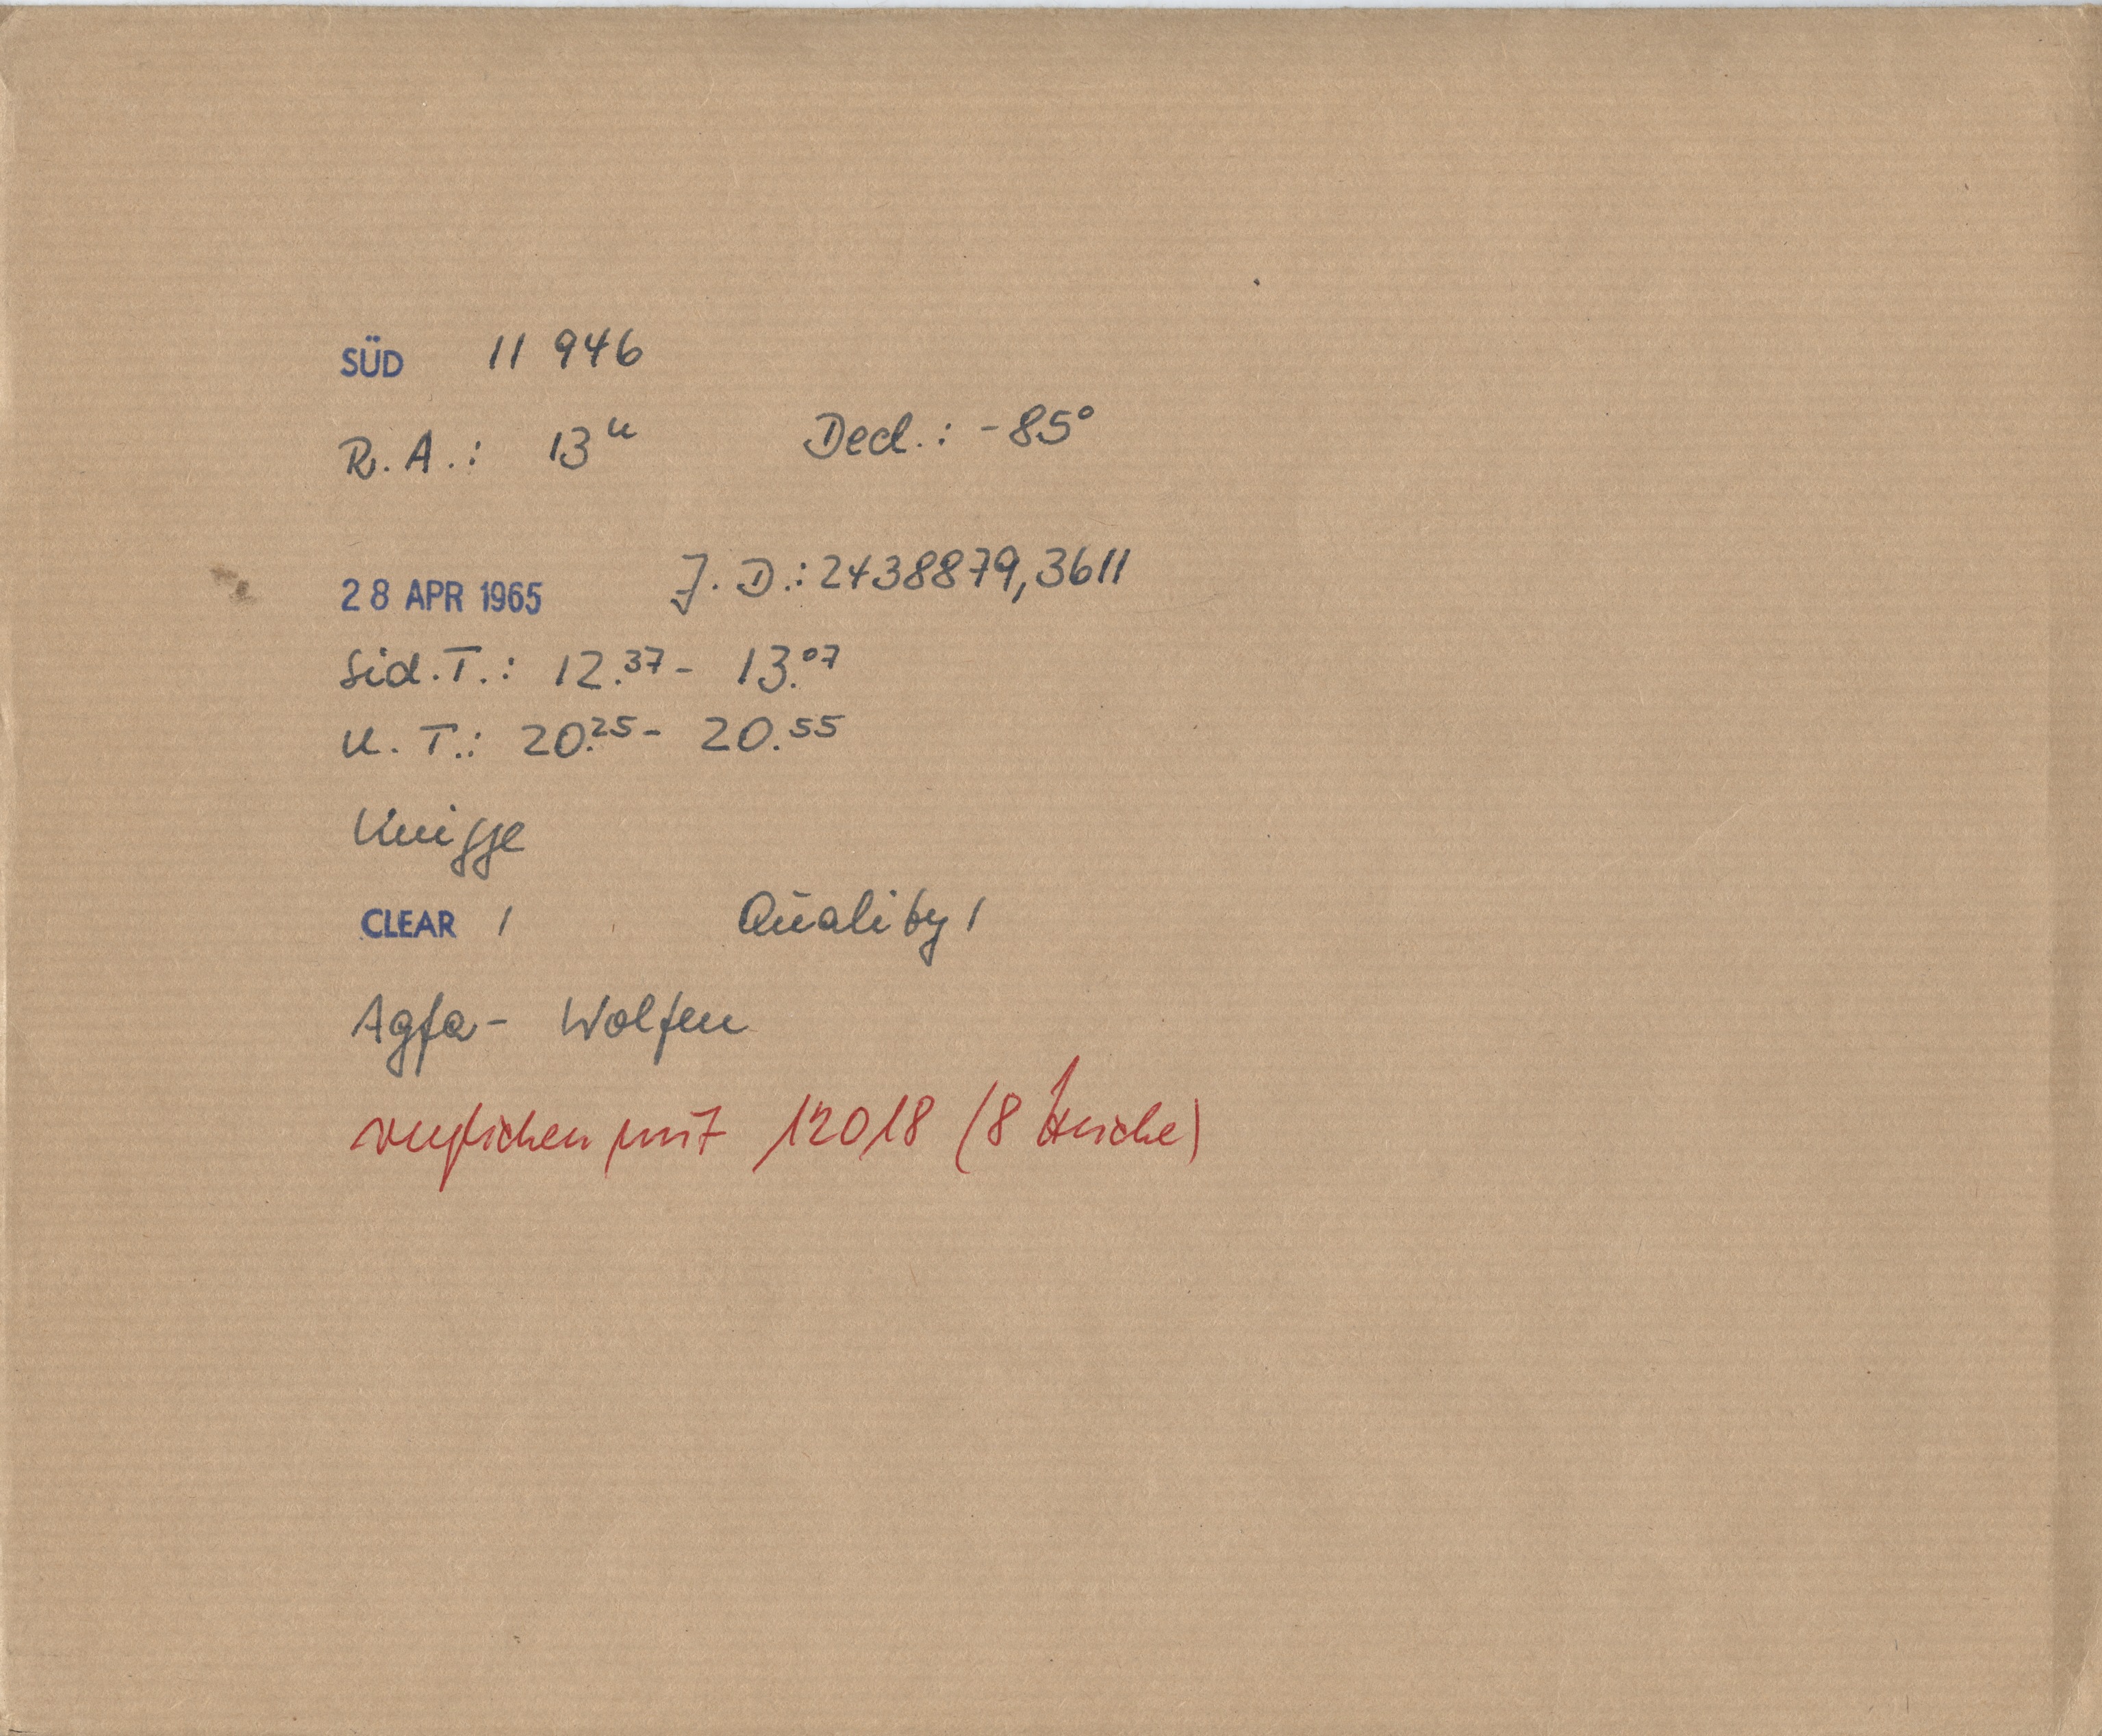 SÜD 11 946
R.A.: 13ʰ Decl.: -85°
28 APR 1965 J.D.: 2438879,3611
Sid.T.: 12.³⁷- 13.⁰⁷
U.T.: 20.²⁵- 20.⁵⁵
Knigge
CLEAR 1 Quality 1
Agfa- Wolfen
verglichen mit 12018 (8